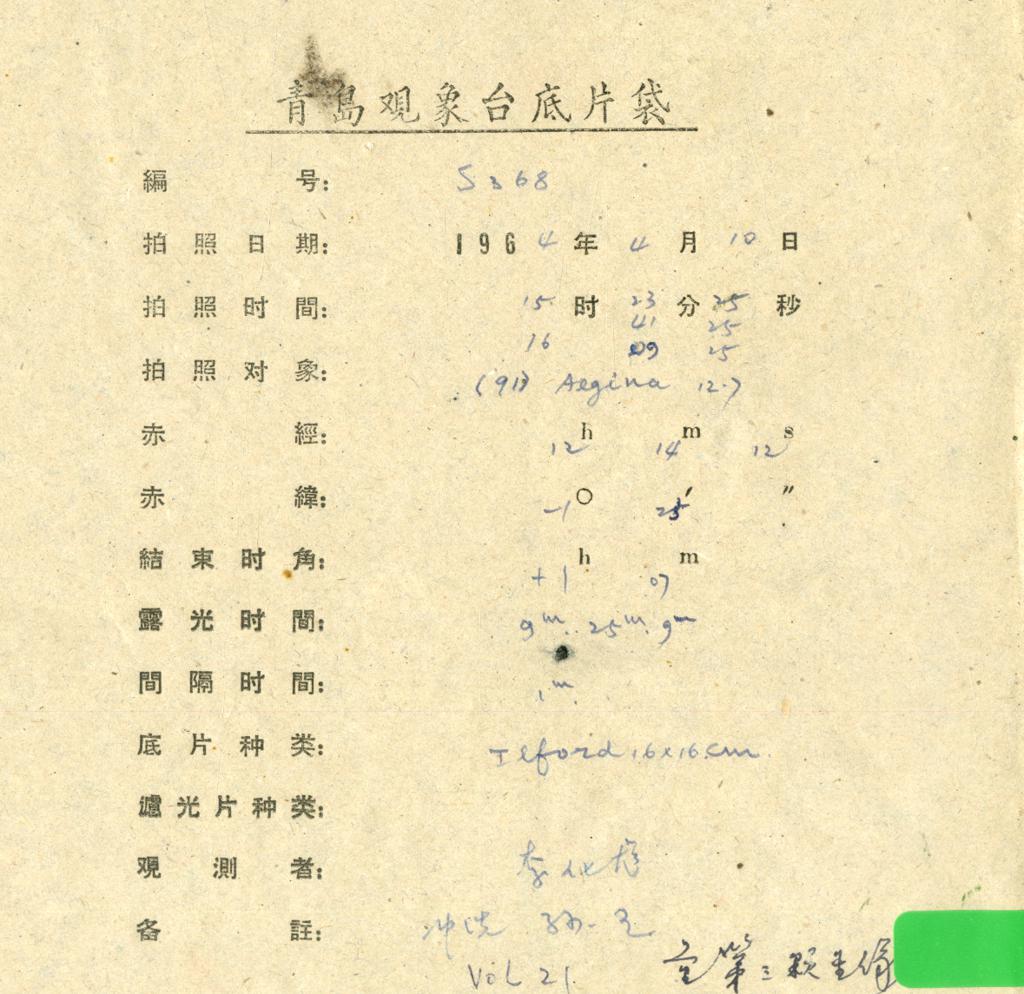 青島观象台底片袋
編 号： S368
拍照日期： 1964年4月10日
拍照时間： 15时23分25秒
41 25
16 09 25
拍照对象： (91) Aegina 12.7
赤 經： 12h 14m 12s
赤 緯： -1° 25′ ″
結束时角： +1h 07m
露光时間： 9m. 25m. 9m
間隔时間： 1m.
底片种类： Ilford 16x16cm.
濾光片种类：
观測者： 李
备 註： 冲洗 孙
Vol 21. 第三颗